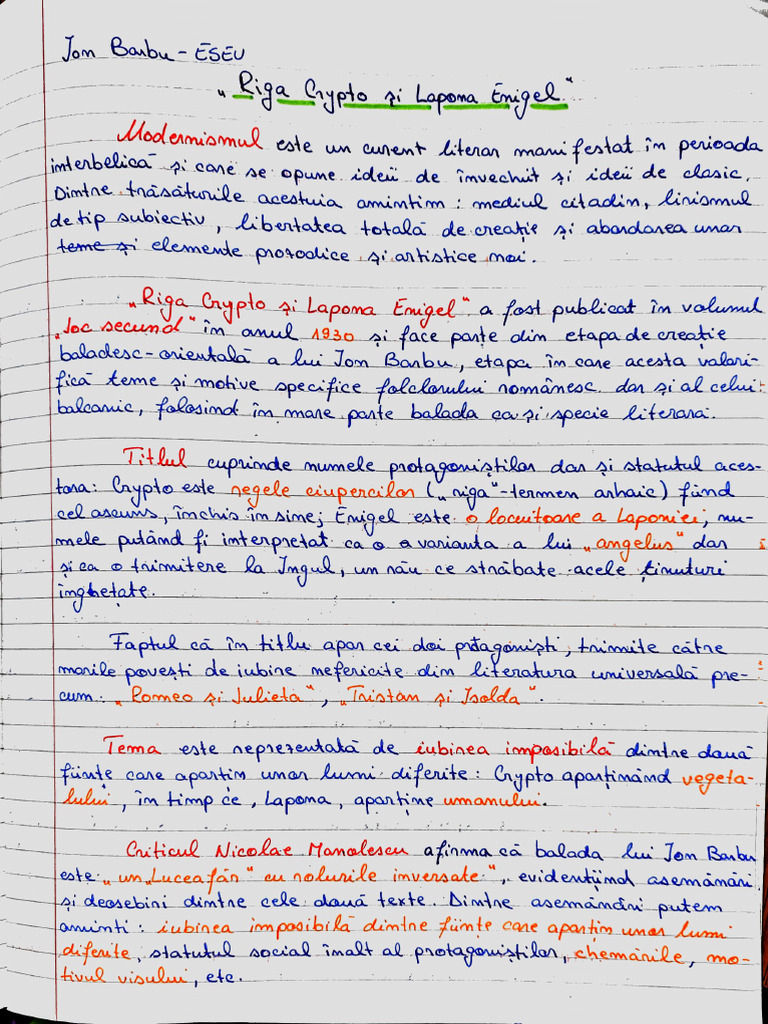 Ion Barbu - ESEU
„Riga Crypto și Lapona Enigel"
Modernismul este un curent literar manifestat în perioada
interbelică și care se opune ideii de învechit și ideii de clasic.
Dintre trăsăturile acestuia amintim: mediul citadin, lirismul
de tip subiectiv, libertatea totală de creație și abordarea unor
teme și elemente prozodice și artistice noi.
„Riga Crypto și Lapona Enigel" a fost publicat în volumul
„Joc secund" în anul 1930 și face parte din etapa de creație
baladesc-orientală a lui Ion Barbu, etapa în care acesta valori-
fică teme și motive specifice folclorului românesc dar și al celui
balcanic, folosind în mare parte balada ca și specie literară.
Titlul cuprinde numele protagoniștilor dar și statutul aces-
tora: Crypto este regele ciupercilor („riga"-termen arhaic) fiind
cel ascuns, închis în sine; Enigel este o locuitoare a Laponiei, nu-
mele putând fi interpretat ca o varianta a lui „angelus" dar
și ca o trimitere la Ingul, un râu ce străbate acele ținuturi
înghețate.
Faptul că în titlu apar cei doi protagoniști, trimite către
marile povești de iubire nefericite din literatura universală pre-
cum: „Romeo și Julieta", „Tristan și Isolda".
Tema este reprezentată de iubirea imposibilă dintre două
ființe care aparțin unor lumi diferite: Crypto aparținând vegeta-
lului, în timp ce, Lapona, aparține umanului.
Criticul Nicolae Manolescu afirma că balada lui Ion Barbu
este „un „Luceafăr" cu rolurile inversate", evidențiind asemănări
și deosebiri dintre cele două texte. Dintre asemănări putem
aminti: iubirea imposibilă dintre ființe care aparțin unor lumi
diferite, statutul social înalt al protagoniștilor, chemările, mo-
tivul visului, etc.